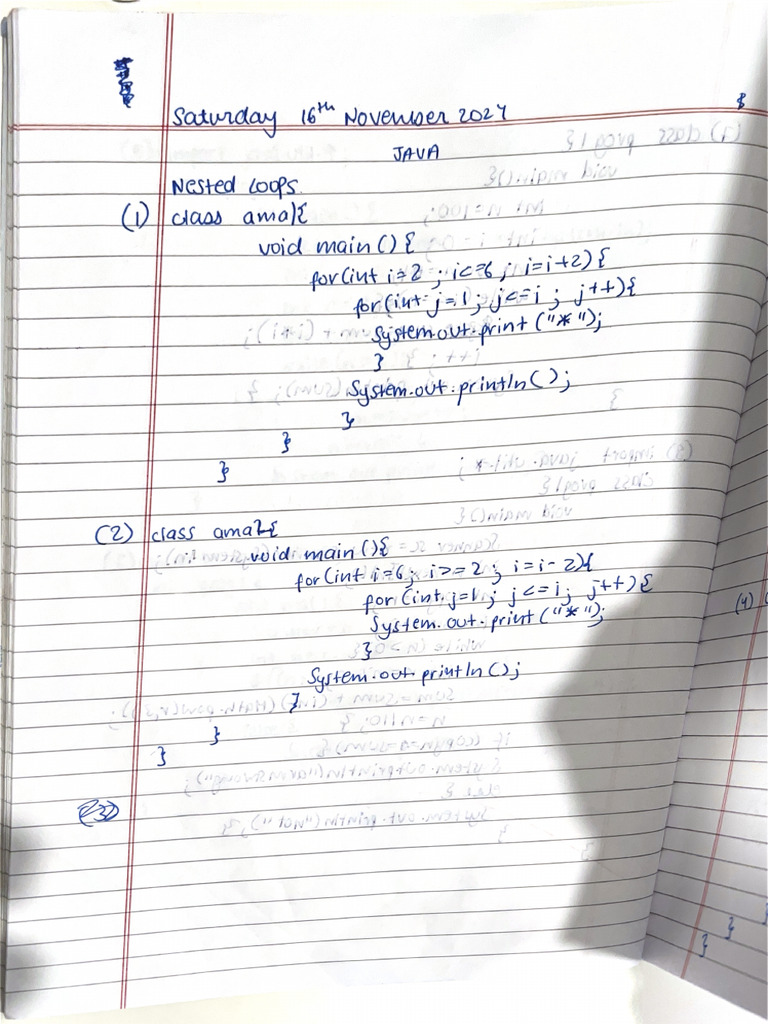 Saturday 16th November 2024
JAVA
Nested Loops.
(1) class ama1{
void main () {
for(int i=2 ; i<=6 ; i=i+2) {
for(int j=1 ; j<=i ; j++){
System.out.print ("*");
}
System.out.println();
}
}
}
(2) class ama2{
void main (){
for(int i=6; i>=2 ; i=i-2){
for (int j=1; j<=i; j++){
System.out.print("*");
}
System.out.println();
}
}
}
(3)
(4)
}
}
}